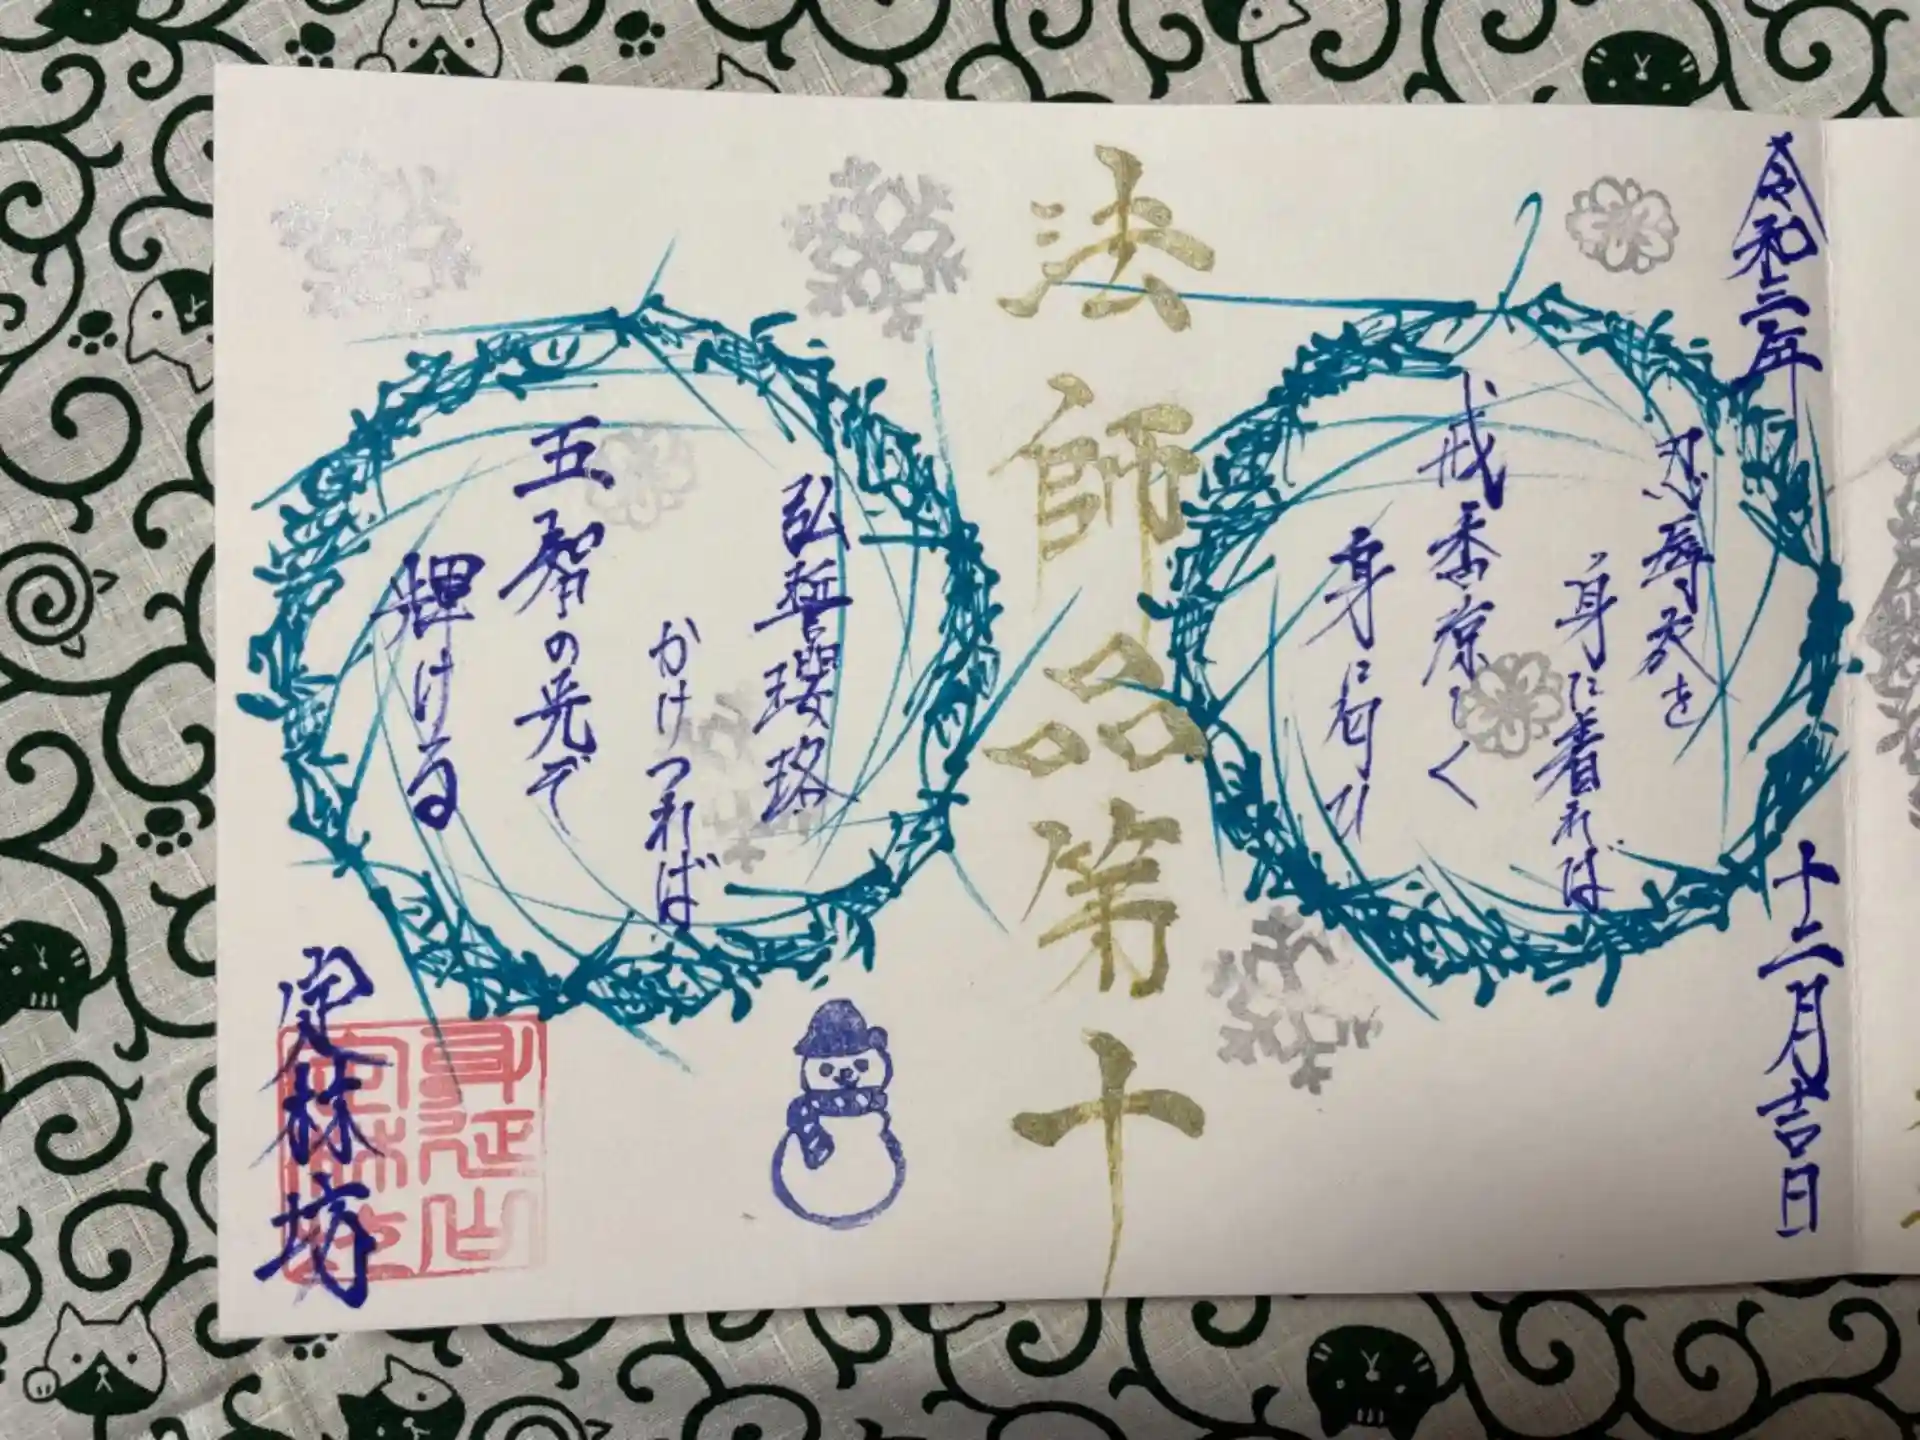 令和三年
十二月吉日
忍辱衣を
身に着れば
戒香涼しく
身に匂ひ
法師品第十
弘誓瓔珞
かけつれば
五智の光ぞ
輝ける
定林坊
身延山
定林坊